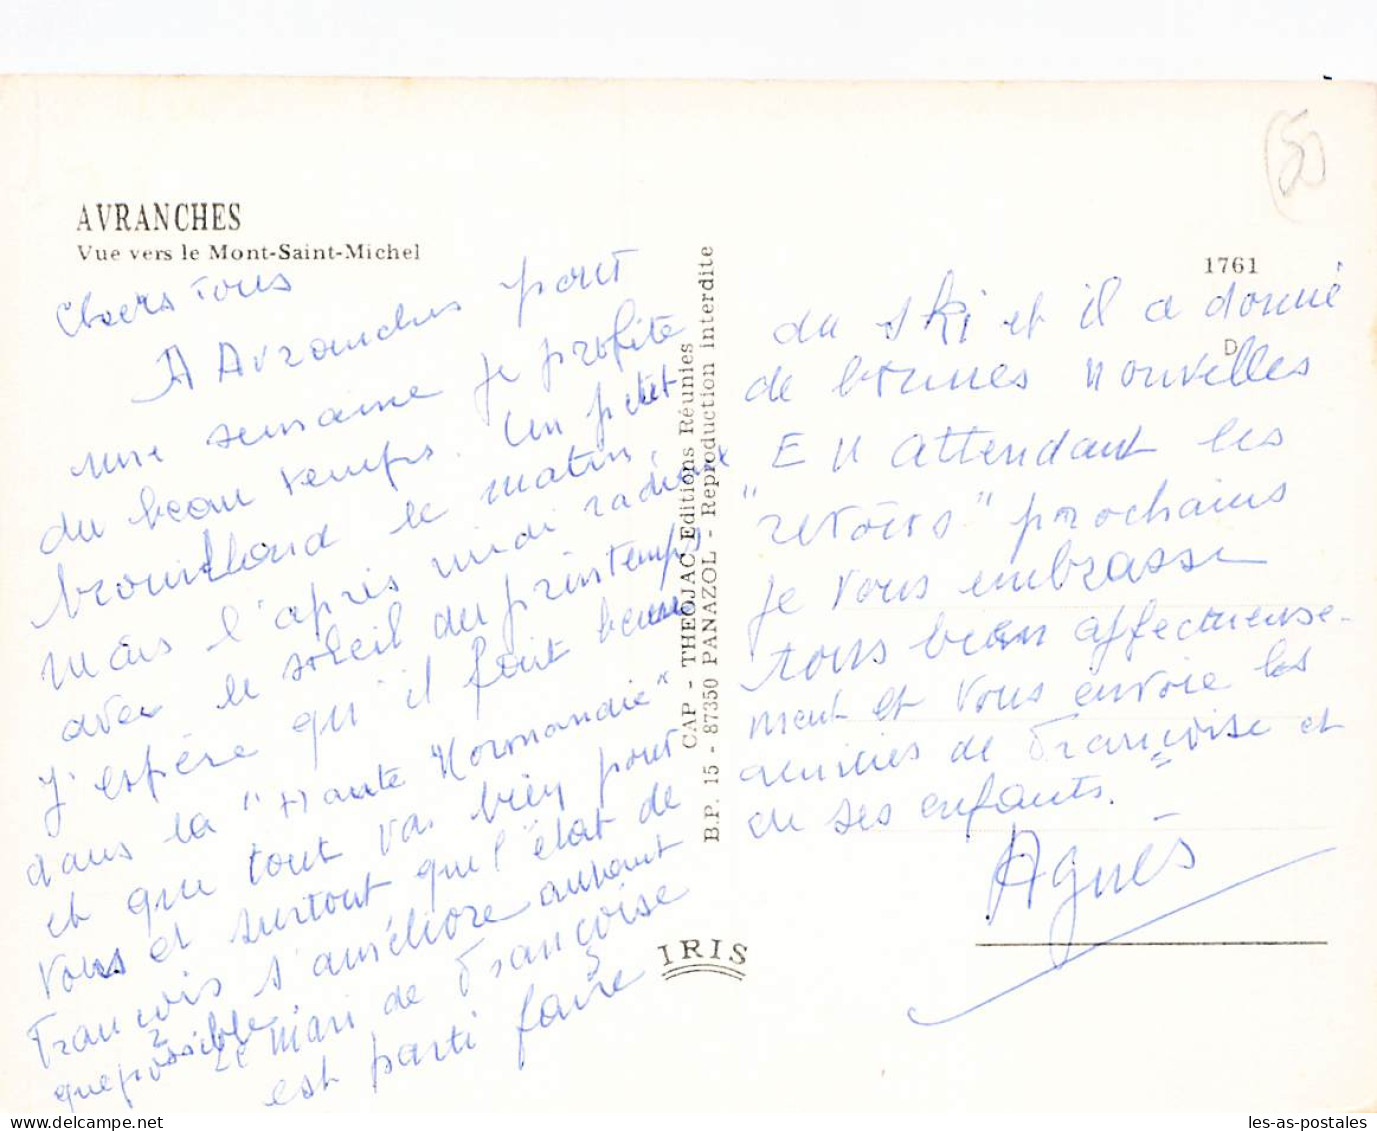 50
AVRANCHES
Vue vers le Mont-Saint-Michel
1761
D
Chers Tous
A Avranches pour
une semaine je profite
du beau temps. Un petit
brouillard le matin,
mais l'après midi radieux
avec le soleil du printemps
J'espère qu'il fait beau
dans la "Haute Normandie"
et que tout va bien pour
vous et surtout que l'état de
François s'améliore autant
que possible. Le mari de Françoise
est parti faire
CAP - THEOJAC Editions Réunies
B.P. 15 - 87350 PANAZOL - Reproduction interdite
IRIS
du ski et il a donné
de bonnes nouvelles
En attendant les
"revoirs" prochains
je vous embrasse
tous bien affectueuse-
ment et vous envoie les
amitiés de Françoise et
de ses enfants.
Agnès
delcampe.net
les-as-postales